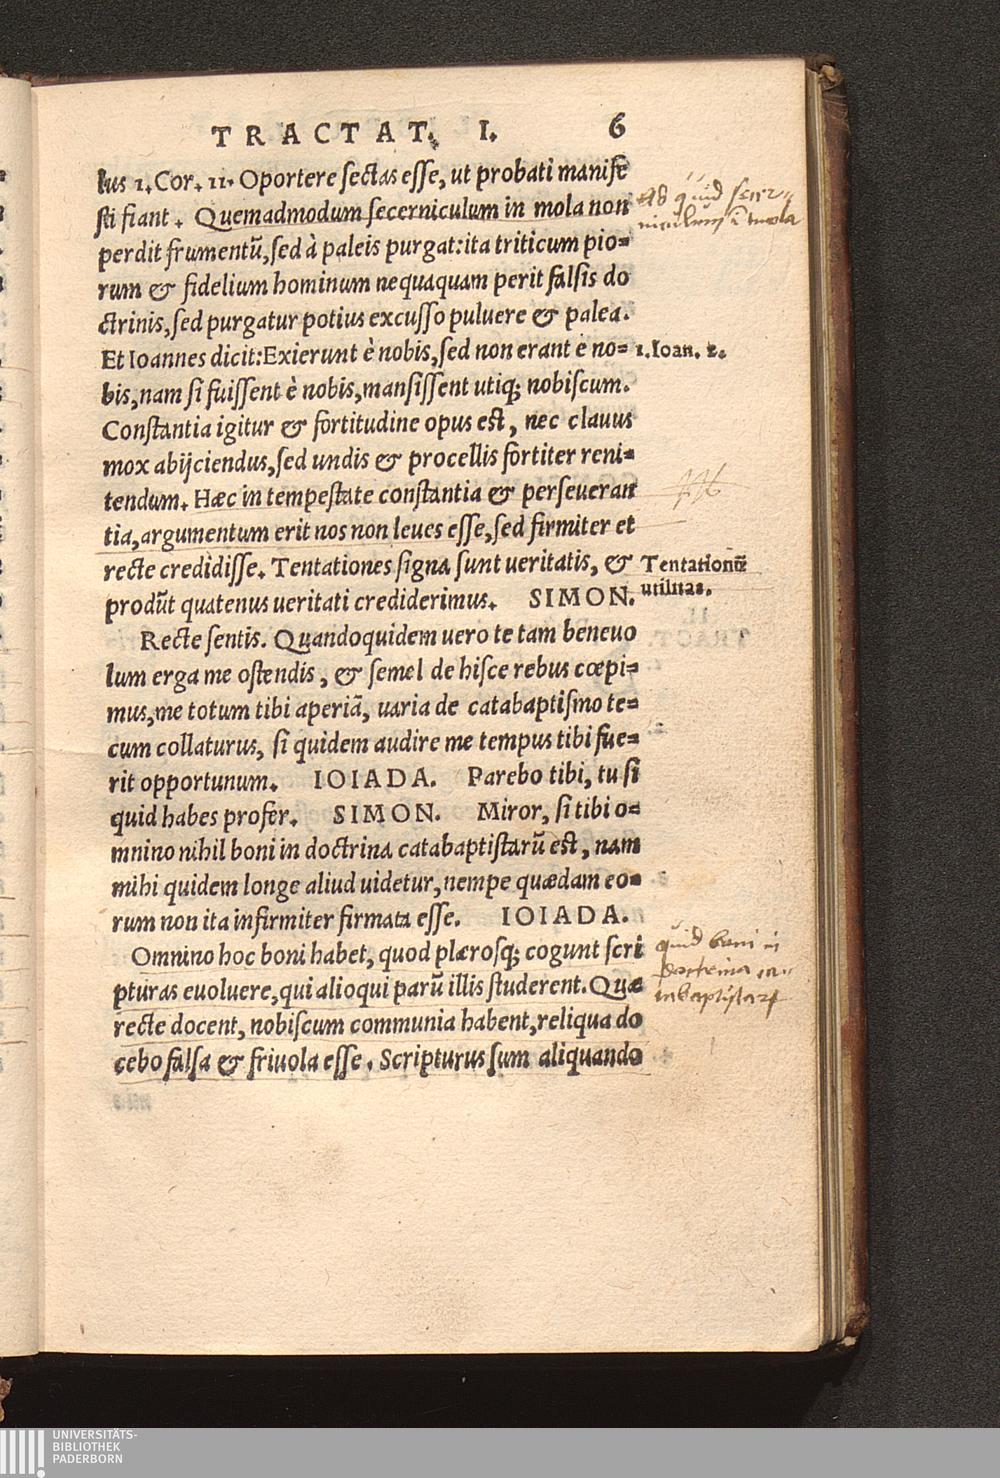 TRACTAT. I. 6
lus 1. Cor. 11. Oportere sectas esse, ut probati manife
sti fiant. Quemadmodum secerniculum in mola non
Ad quid secer-
niculum ĩ mola
perdit frumentũ, sed à paleis purgat: ita triticum pio=
rum & fidelium hominum nequaquam perit falsis do
ctrinis, sed purgatur potius excusso puluere & palea.
Et Ioannes dicit: Exierunt è nobis, sed non erant è no=
1. Ioan. 2.
bis, nam si fuissent è nobis, mansissent utiq; nobiscum.
Constantia igitur & fortitudine opus est, nec clauus
mox abijciendus, sed undis & procellis fortiter reni=
tendum. Hæc in tempestate constantia & perseueran
tia, argumentum erit nos non leues esse, sed firmiter et
recte credidisse. Tentationes signa sunt ueritatis, &
Tentationũ
utilitas.
produ͂t quatenus ueritati crediderimus. SIMON.
Recte sentis. Quandoquidem uero te tam beneuo
lum erga me ostendis, & semel de hisce rebus cœpi=
mus, me totum tibi aperiã, uaria de catabaptismo te=
cum collaturus, si quidem audire me tempus tibi fue=
rit opportunum. IOIADA. Parebo tibi, tu si
quid habes profer. SIMON. Miror, si tibi o=
mnino nihil boni in doctrina catabaptistarũ est, nam
mihi quidem longe aliud uidetur, nempe quædam eo=
rum non ita infirmiter firmata esse. IOIADA.
Omnino hoc boni habet, quod plærosq; cogunt scri
quid boni in
doctrina ca-
tabaptistarũ
pturas euoluere, qui alioqui parũ illis studerent. Quæ
recte docent, nobiscum communia habent, reliqua do
cebo falsa & friuola esse. Scripturus sum aliquando
UNIVERSITÄTS-
BIBLIOTHEK
PADERBORN